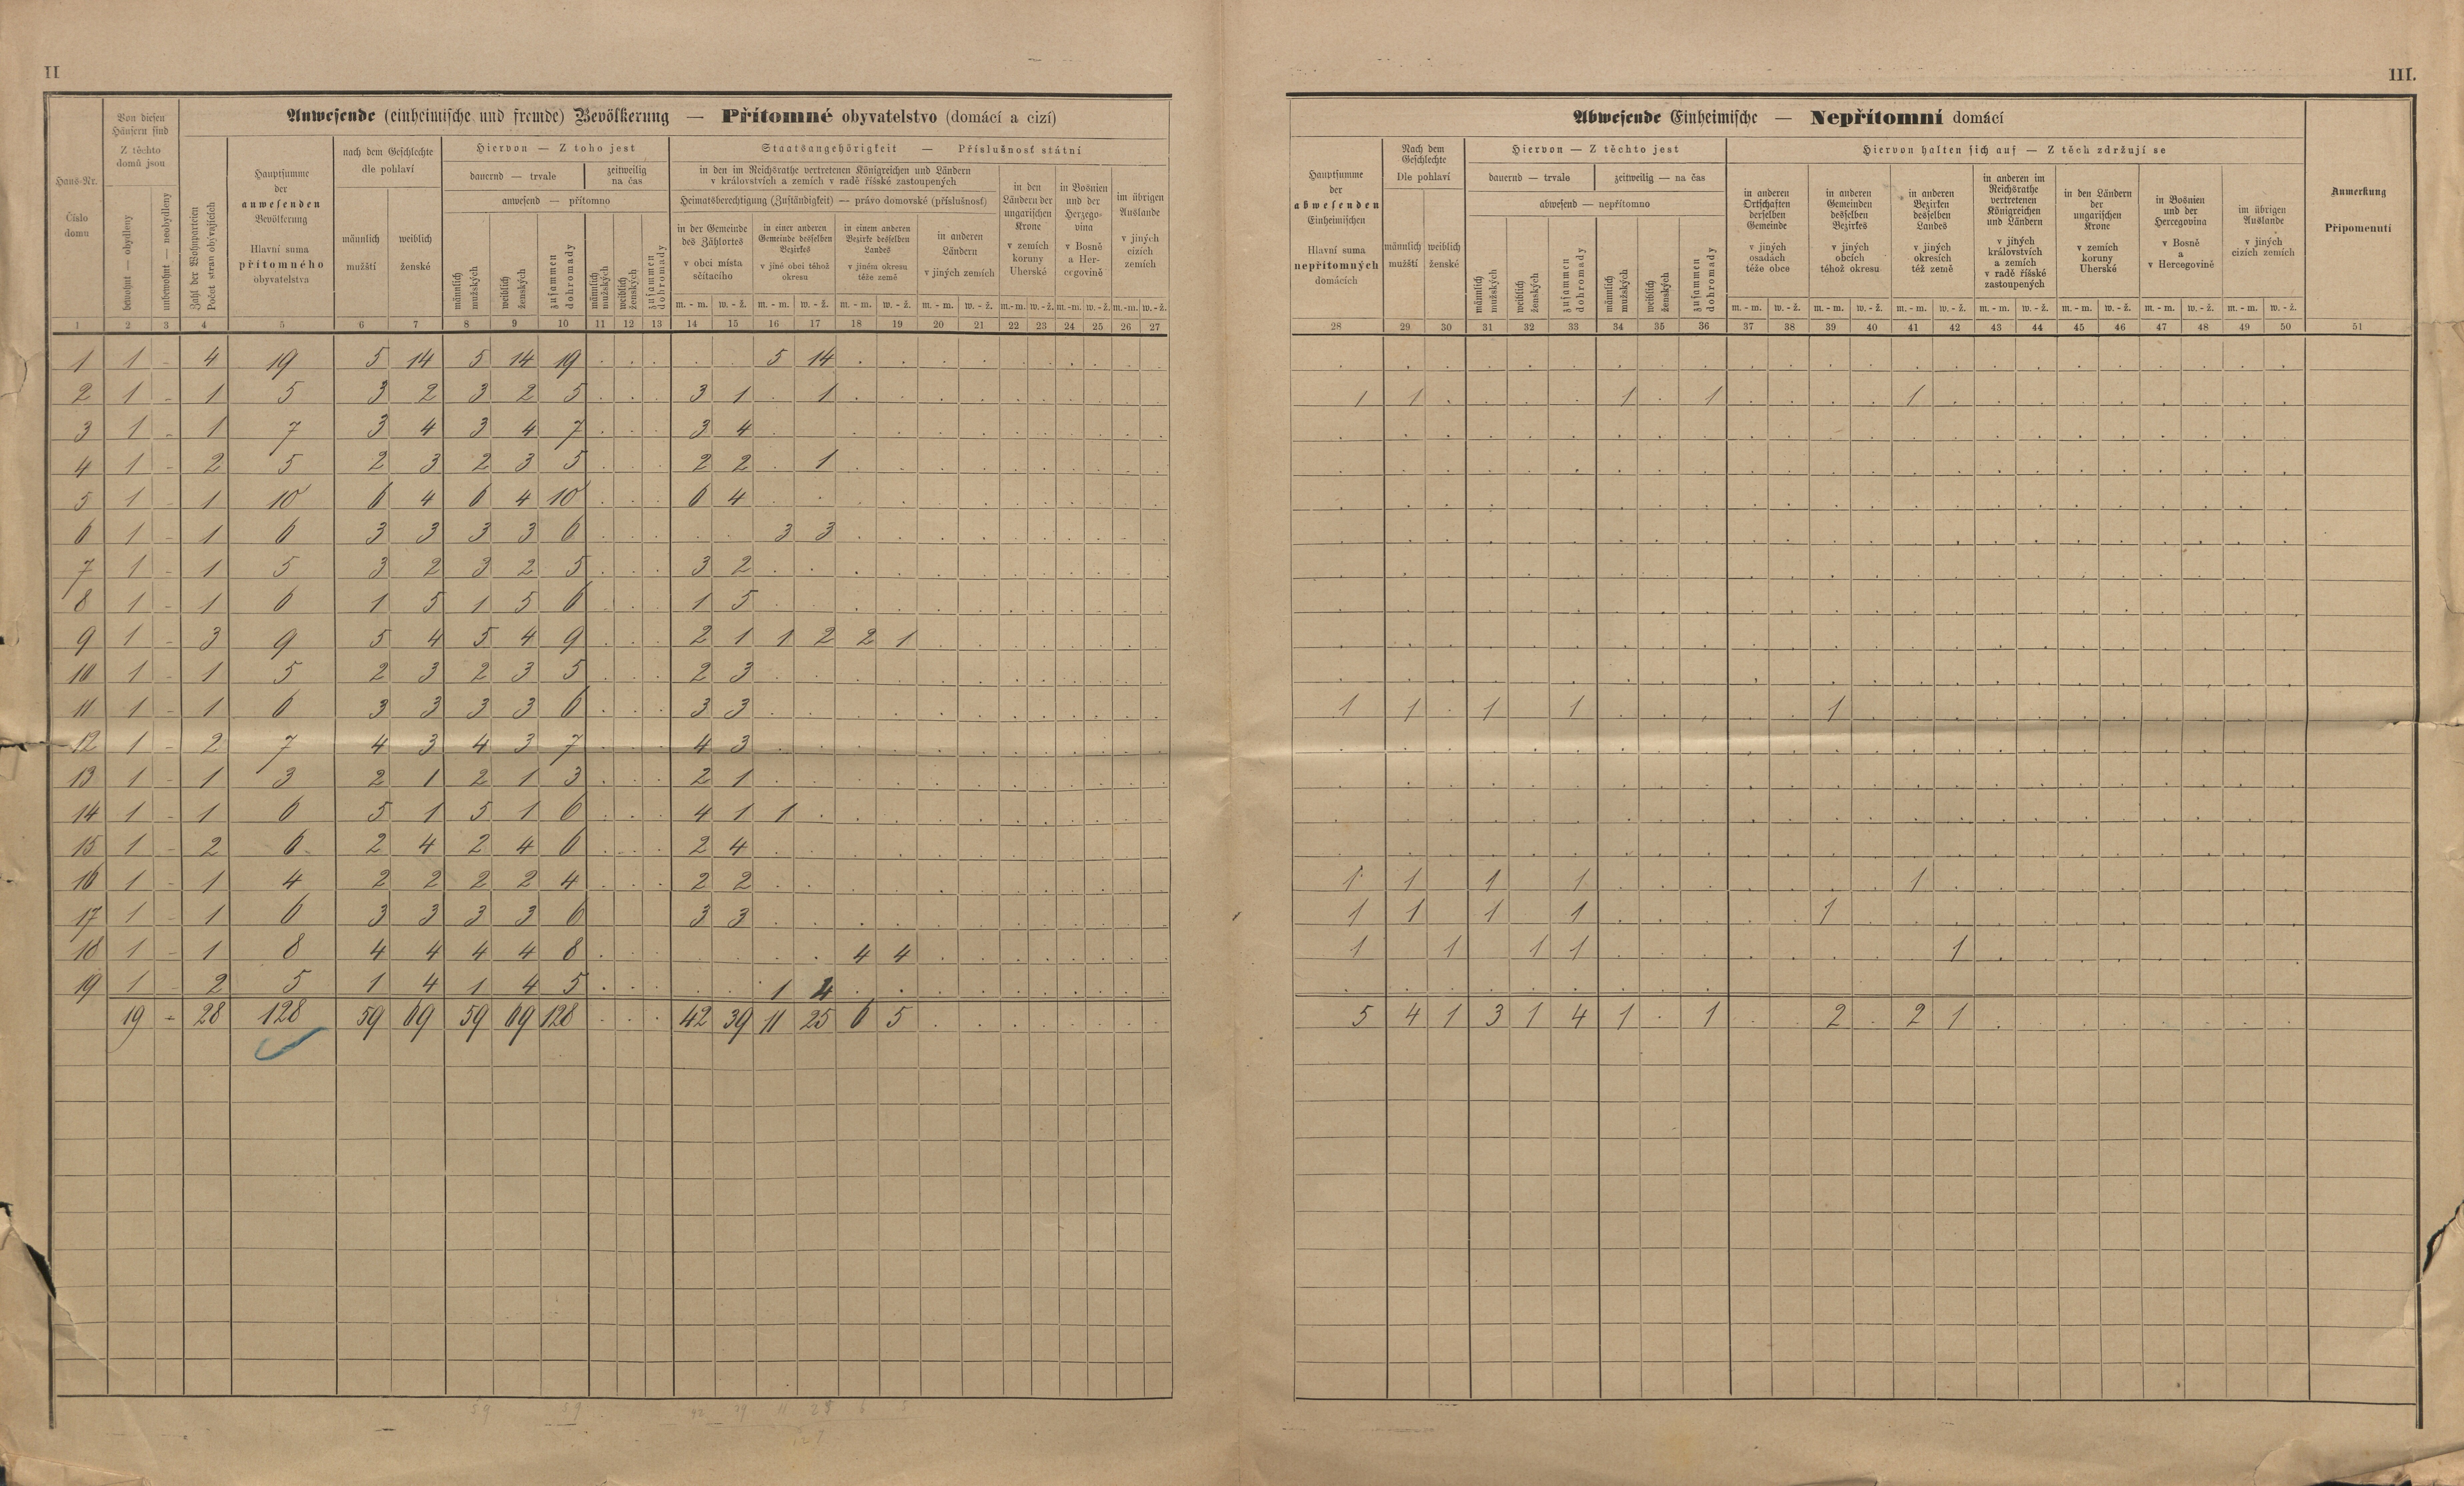 II
III.
Anwesende (einheimische und fremde) Bevölkerung — Přítomné obyvatelstvo (domácí a cizí)
Haus-Nr.
Číslo domu
Von diesen Häusern sind
Z těchto domů jsou
bewohnt — obydleny
unbewohnt — neobydleny
Zahl der Wohnparteien
Počet stran obývajících
Hauptsumme der anwesenden Bevölkerung
Hlavní suma přítomného obyvatelstva
nach dem Geschlechte
dle pohlaví
männlich mužští
weiblich ženské
Hiervon — Z toho jest
dauernd — trvale
zeitweilig na čas
anwesend — přítomno
männlich mužských
weiblich ženských
zusammen dohromady
männlich mužských
weiblich ženských
zusammen dohromady
Staatsangehörigkeit — Příslušnosť státní
in den im Reichsrathe vertretenen Königreichen und Ländern
v královstvích a zemích v radě říšské zastoupených
Heimatsberechtigung (Zuständigkeit) — právo domovské (příslušnosť)
in der Gemeinde des Zählortes
v obci místa sčítacího
in einer anderen Gemeinde desselben Bezirkes
v jiné obci téhož okresu
in einem anderen Bezirke desselben Landes
v jiném okresu téže země
in anderen Ländern
v jiných zemích
in den Ländern der ungarischen Krone
v zemích koruny Uherské
in Bosnien und der Herzegovina
v Bosně a Hercegovině
im übrigen Auslande
v jiných cizích zemích
m. - m. w. - ž. m. - m. w. - ž. m. - m. w. - ž. m. - m. w. - ž. m.-m. w.-ž. m.-m. w.-ž. m.-m. w.-ž.
1 2 3 4 5 6 7 8 9 10 11 12 13 14 15 16 17 18 19 20 21 22 23 24 25 26 27
1 1 - 4 19 5 14 5 14 19 . . . . . 5 14 . . . . . . . . . .
2 1 - 1 5 3 2 3 2 5 . . . 3 1 . 1 . . . . . . . . . .
3 1 - 1 7 3 4 3 4 7 . . . 3 4 . . . . . . . . . . . .
4 1 - 2 5 2 3 2 3 5 . . . 2 2 . 1 . . . . . . . . . .
5 1 - 1 10 6 4 6 4 10 . . . 6 4 . . . . . . . . . . . .
6 1 - 1 6 3 3 3 3 6 . . . . . 3 3 . . . . . . . . . .
7 1 - 1 5 3 2 3 2 5 . . . 3 2 . . . . . . . . . . . .
8 1 - 1 6 1 5 1 5 6 . . . 1 5 . . . . . . . . . . . .
9 1 - 3 9 5 4 5 4 9 . . . 2 1 1 2 2 1 . . . . . . . .
10 1 - 1 5 2 3 2 3 5 . . . 2 3 . . . . . . . . . . . .
11 1 - 1 6 3 3 3 3 6 . . . 3 3 . . . . . . . . . . . .
12 1 - 2 7 4 3 4 3 7 . . . 4 3 . . . . . . . . . . . .
13 1 - 1 3 2 1 2 1 3 . . . 2 1 . . . . . . . . . . . .
14 1 - 1 6 5 1 5 1 6 . . . 4 1 1 . . . . . . . . . . .
15 1 - 2 6 2 4 2 4 6 . . . 2 4 . . . . . . . . . . . .
16 1 - 1 4 2 2 2 2 4 . . . 2 2 . . . . . . . . . . . .
17 1 - 1 6 3 3 3 3 6 3 3 . . . . . . . . . . . .
18 1 - 1 8 4 4 4 4 8 . . . . . . . 4 4 . . . . . . . .
19 1 - 2 5 1 4 1 4 5 . . . . . 1 4 . . . . . . . . . .
19 - 28 128 59 69 59 69 128 . . . 42 39 11 25 6 5 . . . . . . . .
Abwesende Einheimische — Nepřítomní domácí
Hauptsumme der abwesenden Einheimischen
Hlavní suma nepřítomných domácích
Nach dem Geschlechte
Dle pohlaví
männlich mužští
weiblich ženské
Hiervon — Z těchto jest
dauernd — trvale
zeitweilig — na čas
abwesend — nepřítomno
männlich mužských
weiblich ženských
zusammen dohromady
männlich mužských
weiblich ženských
zusammen dohromady
Hiervon halten sich auf — Z těch zdržují se
in anderen Ortschaften derselben Gemeinde
v jiných osadách téže obce
in anderen Gemeinden desselben Bezirkes
v jiných obcích téhož okresu
in anderen Bezirken desselben Landes
v jiných okresích též země
in anderen im Reichsrathe vertretenen Königreichen und Ländern
v jiných královstvích a zemích v radě říšské zastoupených
in den Ländern der ungarischen Krone
v zemích koruny Uherské
in Bosnien und der Hercegovina
v Bosně a v Hercegovině
im übrigen Auslande
v jiných cizích zemích
Anmerkung
Připomenutí
m. - m. w. - ž. m. - m. w. - ž. m. - m. w. - ž. m. - m. w. - ž. m. - m. w. - ž. m. - m. w. - ž. m. - m. w. - ž.
28 29 30 31 32 33 34 35 36 37 38 39 40 41 42 43 44 45 46 47 48 49 50 51
1 1 . . . . 1 . 1 . . . . 1 . . . . . . . . .
1 1 . 1 1 . . . . . 1 . . . . . . . . . . .
1 1 1 1 . . . . . . . 1 . . . . . . . . .
1 1 1 1 . . . . . 1 . . . . . . . . . . .
1 1 1 1 . . . . . . . . 1 . . . . . . . .
5 4 1 3 1 4 1 . 1 . . 2 . 2 1 . . . . . . . .